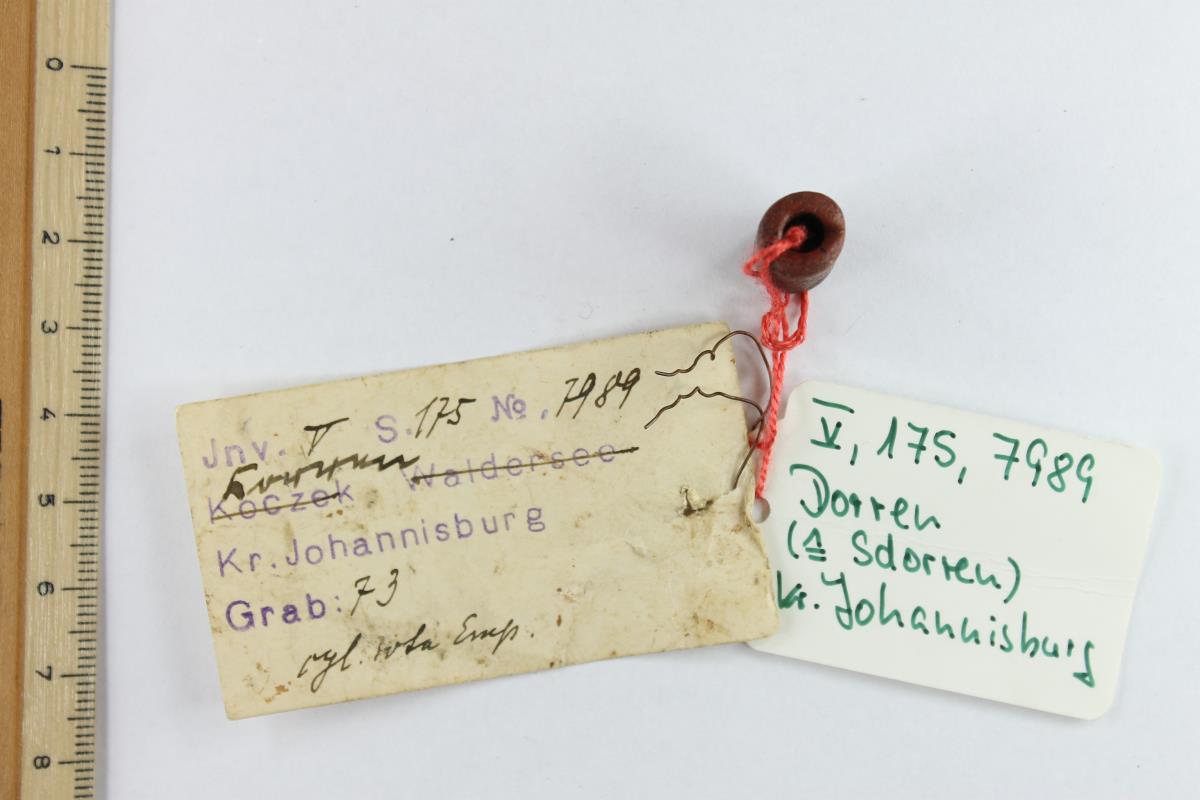 0
1
2
3
4
5
6
7
8
Jnv. V S. 175 No. 7989
Dorren
Koczek Waldersee
Kr. Johannisburg
Grab: 73
cyl. rote Emp.
V, 175, 7989
Dorren
(≙ Sdorren)
Kr. Johannisburg